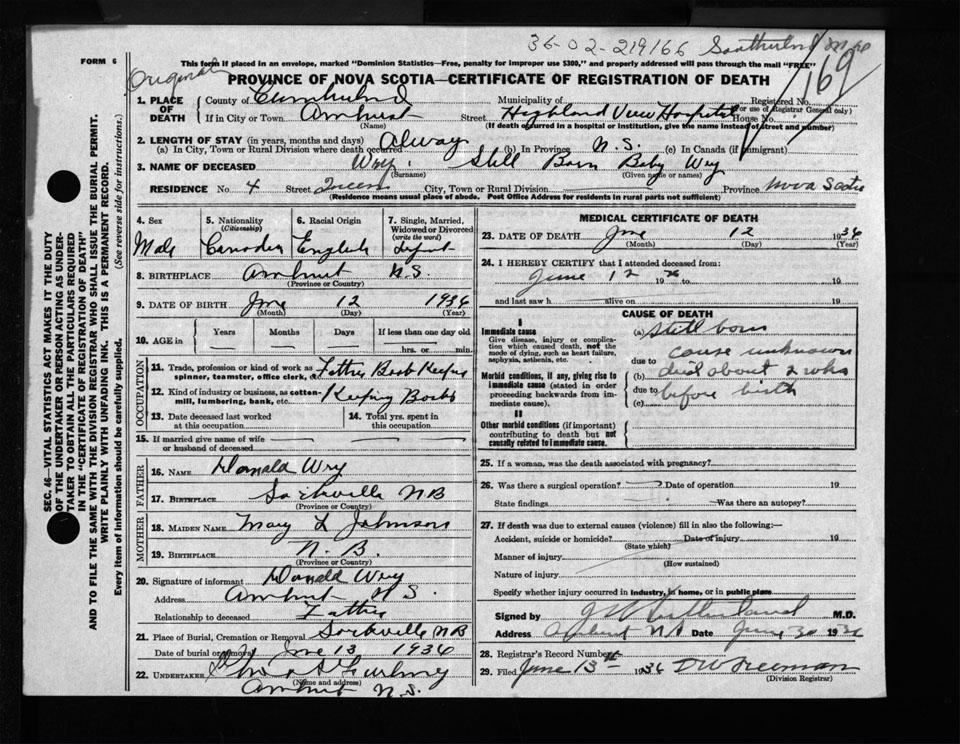 36-02-219166 Southerland
169
Original
FORM 6
This form if placed in an envelope, marked "Dominion Statistics—Free, penalty for improper use $300," and properly addressed will pass through the mail "FREE"
PROVINCE OF NOVA SCOTIA—CERTIFICATE OF REGISTRATION OF DEATH
1. PLACE OF DEATH { County of Cumberland Municipality of Registered No.
(For use of Registrar General only)
If in City or Town Amherst Street Highland View Hospital House No.
(Name) (If death occurred in a hospital or institution, give the name instead of street and number)
2. LENGTH OF STAY (in years, months and days)
(a) In City, Town or Rural Division where death occurred Always (b) In Province N.S. (c) In Canada (if immigrant)
3. NAME OF DECEASED Wry Still Born Baby Wry
(Surname) (Given name or names)
RESIDENCE No. 4 Street Queen City, Town or Rural Division Province Nova Scotia
(Residence means usual place of abode. Post Office Address for residents in rural parts not sufficient)
4. Sex
Male
5. Nationality (Citizenship)
Canadian
6. Racial Origin
English
7. Single, Married, Widowed or Divorced (write the word)
Infant
8. BIRTHPLACE Amherst N.S.
(Province or Country)
9. DATE OF BIRTH June 12 1936
(Month) (Day) (Year)
10. AGE in { Years Months Days If less than one day old
hrs. or min.
OCCUPATION
11. Trade, profession or kind of work as spinner, teamster, office clerk, etc. Father Book Keeper
12. Kind of industry or business, as cotton-mill, lumbering, bank, etc. Keeping Books
13. Date deceased last worked at this occupation
14. Total yrs. spent in this occupation
15. If married give name of wife or husband of deceased
FATHER
16. NAME Donald Wry
17. BIRTHPLACE Sackville NB
(Province or Country)
MOTHER
18. MAIDEN NAME Mary L Johnson
19. BIRTHPLACE N.B.
(Province or Country)
20. Signature of informant Donald Wry
Address Amherst N.S.
Relationship to deceased Father
21. Place of Burial, Cremation or Removal Sackville NB
Date of burial or removal June 13 1936
22. UNDERTAKER
(Name and address)
Amherst N.S.
MEDICAL CERTIFICATE OF DEATH
23. DATE OF DEATH June 12 1936
(Month) (Day) (Year)
24. I HEREBY CERTIFY that I attended deceased from:
June 12 1936 to 19
and last saw h alive on 19
CAUSE OF DEATH
I
Immediate cause
Give disease, injury or complication which caused death, not the mode of dying, such as heart failure, asphyxia, asthenia, etc.
(a) Still born
due to cause unknown
Morbid conditions, if any, giving rise to immediate cause (stated in order proceeding backwards from immediate cause).
(b) died about 2 wks
due to before birth
(c)
II
Other morbid conditions (if important) contributing to death but not causally related to immediate cause.
25. If a woman, was the death associated with pregnancy?
26. Was there a surgical operation? Date of operation 19
State findings Was there an autopsy?
27. If death was due to external causes (violence) fill in also the following:—
Accident, suicide or homicide? Date of injury 19
(State which)
Manner of injury
(How sustained)
Nature of injury
Specify whether injury occurred in industry, in home, or in public place
Signed by M.D.
Address Amherst NS Date June 30 1936
28. Registrar's Record Number
29. Filed June 13th 1936 DW Freeman
(Division Registrar)
SEC. 46—VITAL STATISTICS ACT MAKES IT THE DUTY
OF THE UNDERTAKER OR PERSON ACTING AS UNDER-
TAKER TO OBTAIN ALL THE PARTICULARS REQUIRED
IN THE "CERTIFICATE OF REGISTRATION OF DEATH"
AND TO FILE THE SAME WITH THE DIVISION REGISTRAR WHO SHALL ISSUE THE BURIAL PERMIT.
WRITE PLAINLY WITH UNFADING INK. THIS IS A PERMANENT RECORD.
Every item of Information should be carefully supplied. (See reverse side for instructions.)